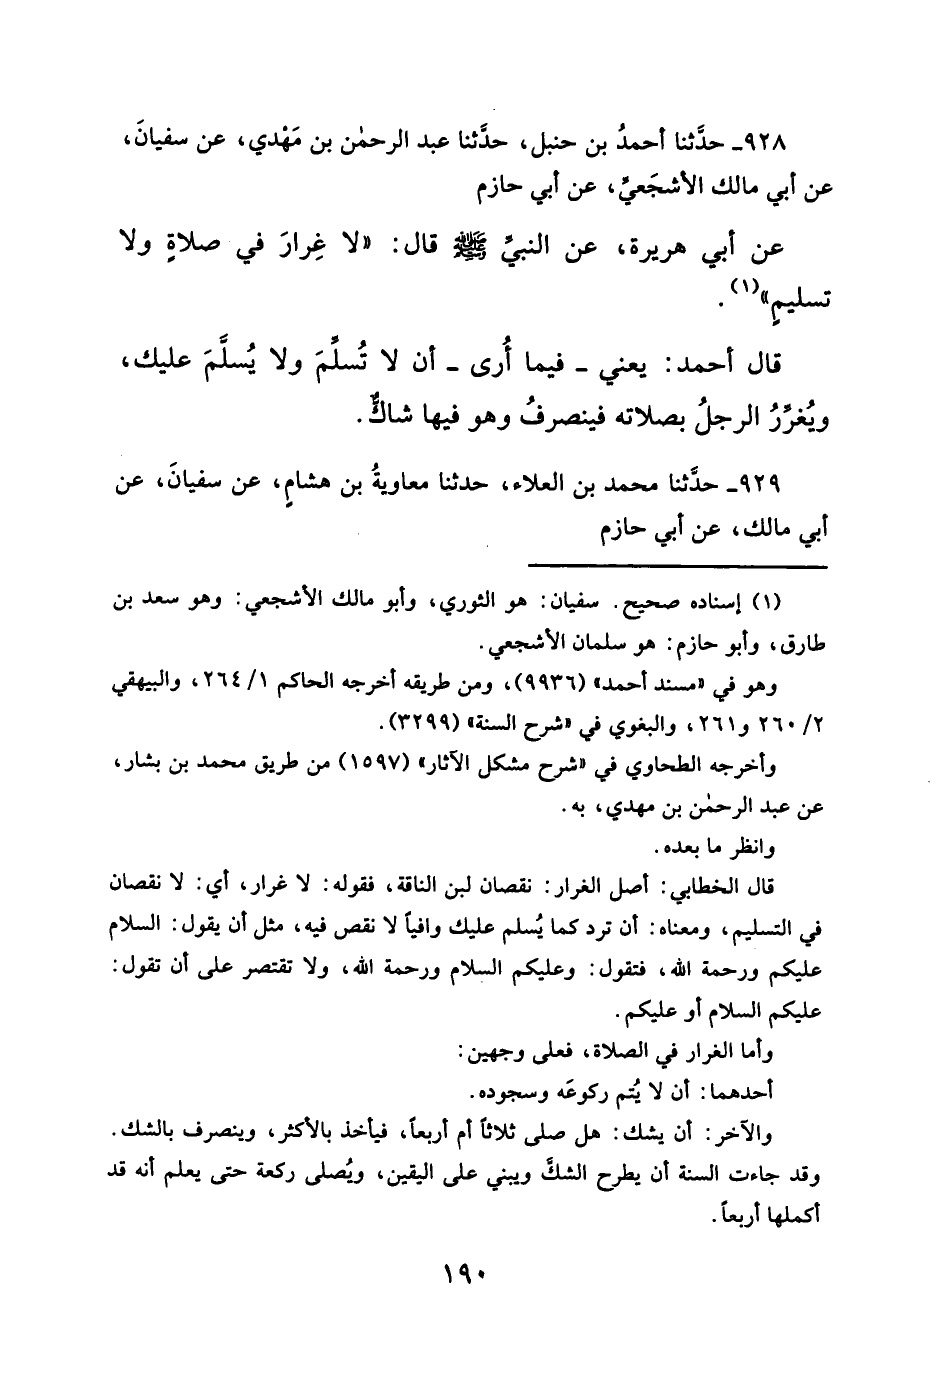 ٩٢٨ـ حدَّثنا أحمدُ بن حنبل، حدَّثنا عبد الرحمٰن بن مَهْدي، عن سفيانَ،
عن أبي مالك الأشجَعيِّ، عن أبي حازم
عن أبي هريرة، عن النبيِّ ﷺ قال: «لا غِرارَ في صلاةٍ ولا
تسليمٍ»(١).
قال أحمد: يعني ـ فيما أُرى ـ أن لا تُسلِّمَ ولا يُسلَّمَ عليك،
ويُغرِّرُ الرجلُ بصلاته فينصرفُ وهو فيها شاكٌّ.
٩٢٩ـ حدَّثنا محمد بن العلاء، حدثنا معاويةُ بن هشامٍ، عن سفيانَ، عن
أبي مالك، عن أبي حازم
(١) إسناده صحيح. سفيان: هو الثوري، وأبو مالك الأشجعي: وهو سعد بن
طارق، وأبو حازم: هو سلمان الأشجعي.
وهو في «مسند أحمد» (٩٩٣٦)، ومن طريقه أخرجه الحاكم ١/ ٢٦٤، والبيهقي
٢/ ٢٦٠ و٢٦١، والبغوي في «شرح السنة» (٣٢٩٩).
وأخرجه الطحاوي في «شرح مشكل الآثار» (١٥٩٧) من طريق محمد بن بشار،
عن عبد الرحمٰن بن مهدي، به.
وانظر ما بعده.
قال الخطابي: أصل الغرار: نقصان لبن الناقة، فقوله: لا غرار، أي: لا نقصان
في التسليم، ومعناه: أن ترد كما يُسلم عليك وافياً لا نقص فيه، مثل أن يقول: السلام
عليكم ورحمة الله، فتقول: وعليكم السلام ورحمة الله، ولا تقتصر على أن تقول:
عليكم السلام أو عليكم.
وأما الغرار في الصلاة، فعلى وجهين:
أحدهما: أن لا يُتم ركوعَه وسجوده.
والآخر: أن يشك: هل صلى ثلاثاً أم أربعاً، فيأخذ بالأكثر، وينصرف بالشك.
وقد جاءت السنة أن يطرح الشكَّ ويبني على اليقين، ويُصلي ركعة حتى يعلم أنه قد
أكملها أربعاً.
١٩٠